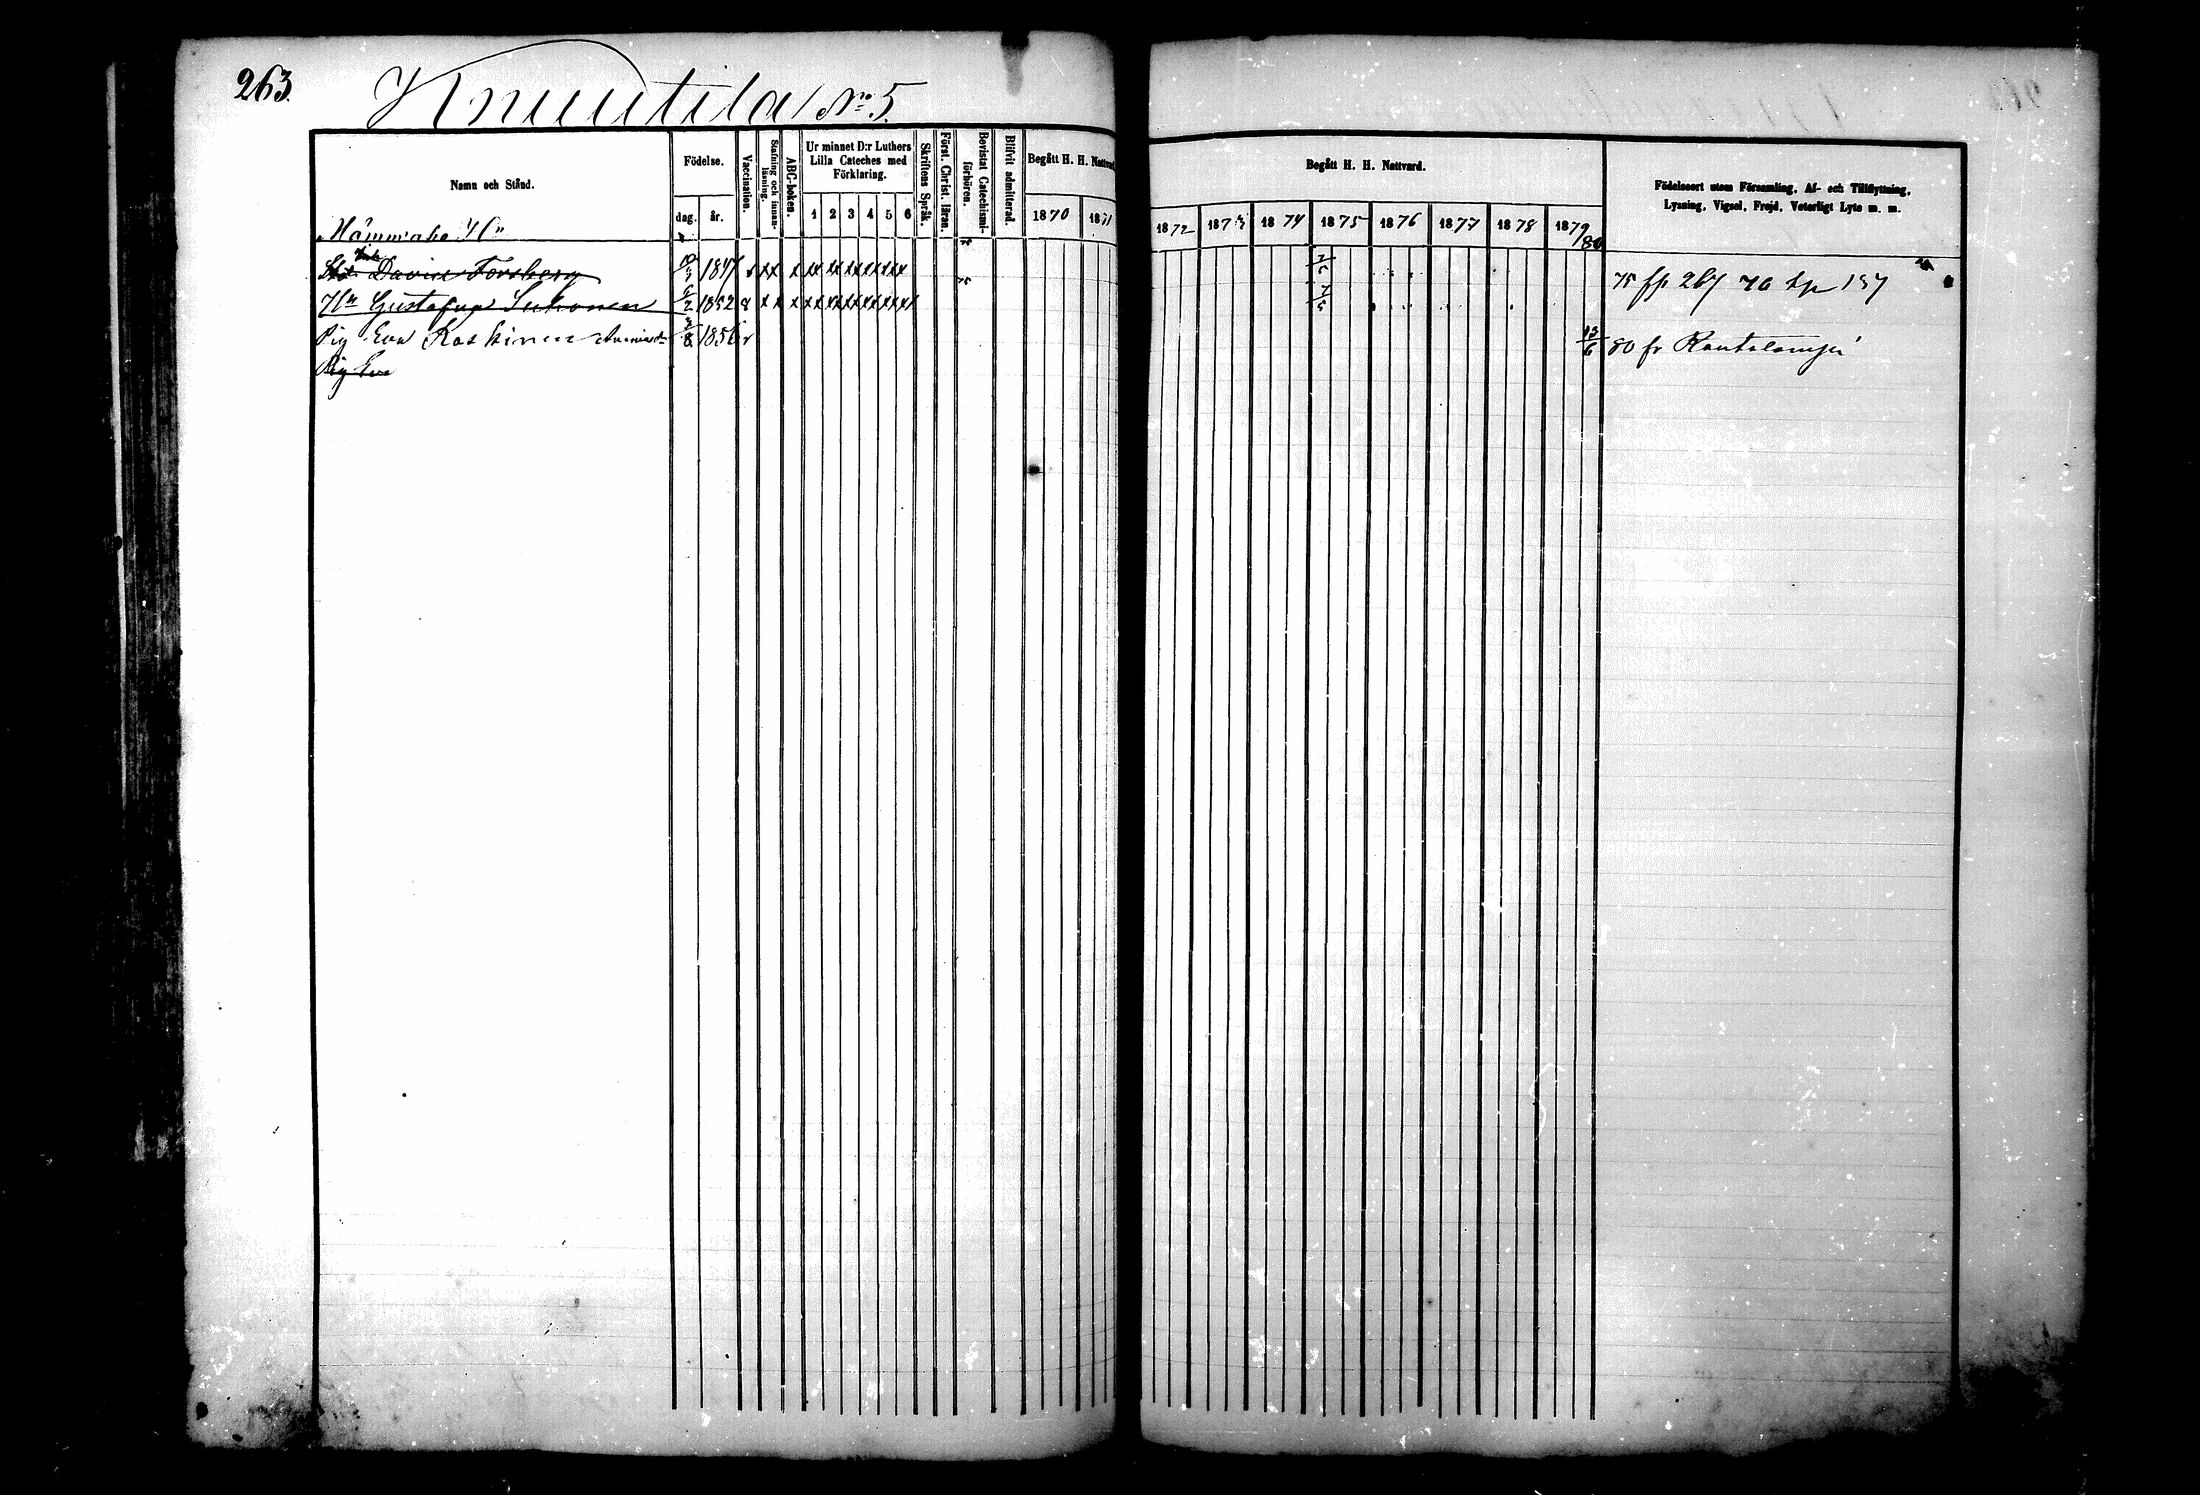 263.
Knuutila No 5.
Namn och Stånd.
Födelse.
dag.
år.
Vaccination.
Stafning och innan-läsning.
ABC-boken.
Ur minnet D:r Luthers
Lilla Cateches med
Förklaring.
1 2 3 4 5 6
Skriftens Språk.
Först. Christ. läran.
Bevistat Catechismi-förhören.
Blifvit admitterad.
Begått H. H. Nattvard
1870 1871
Begått H. H. Nattvard.
1872 1873 1874 1875 1876 1877 1878 1879/80
Födelseort utom Församling, Af- och Tillflyttning,
Lysning, Vigsel, Frejd, Veterligt Lyte m. m.
David Forsberg 1847 x xx x xx xx xx xx xx 75 fp 267 76 tp 157
Hu Gustafva Sukonen 6/2 1852 x x x x 7/5
Pig Eva Koskinen 3/8 1856 v 13/6 80 fr Rautalampi
Pig Eva